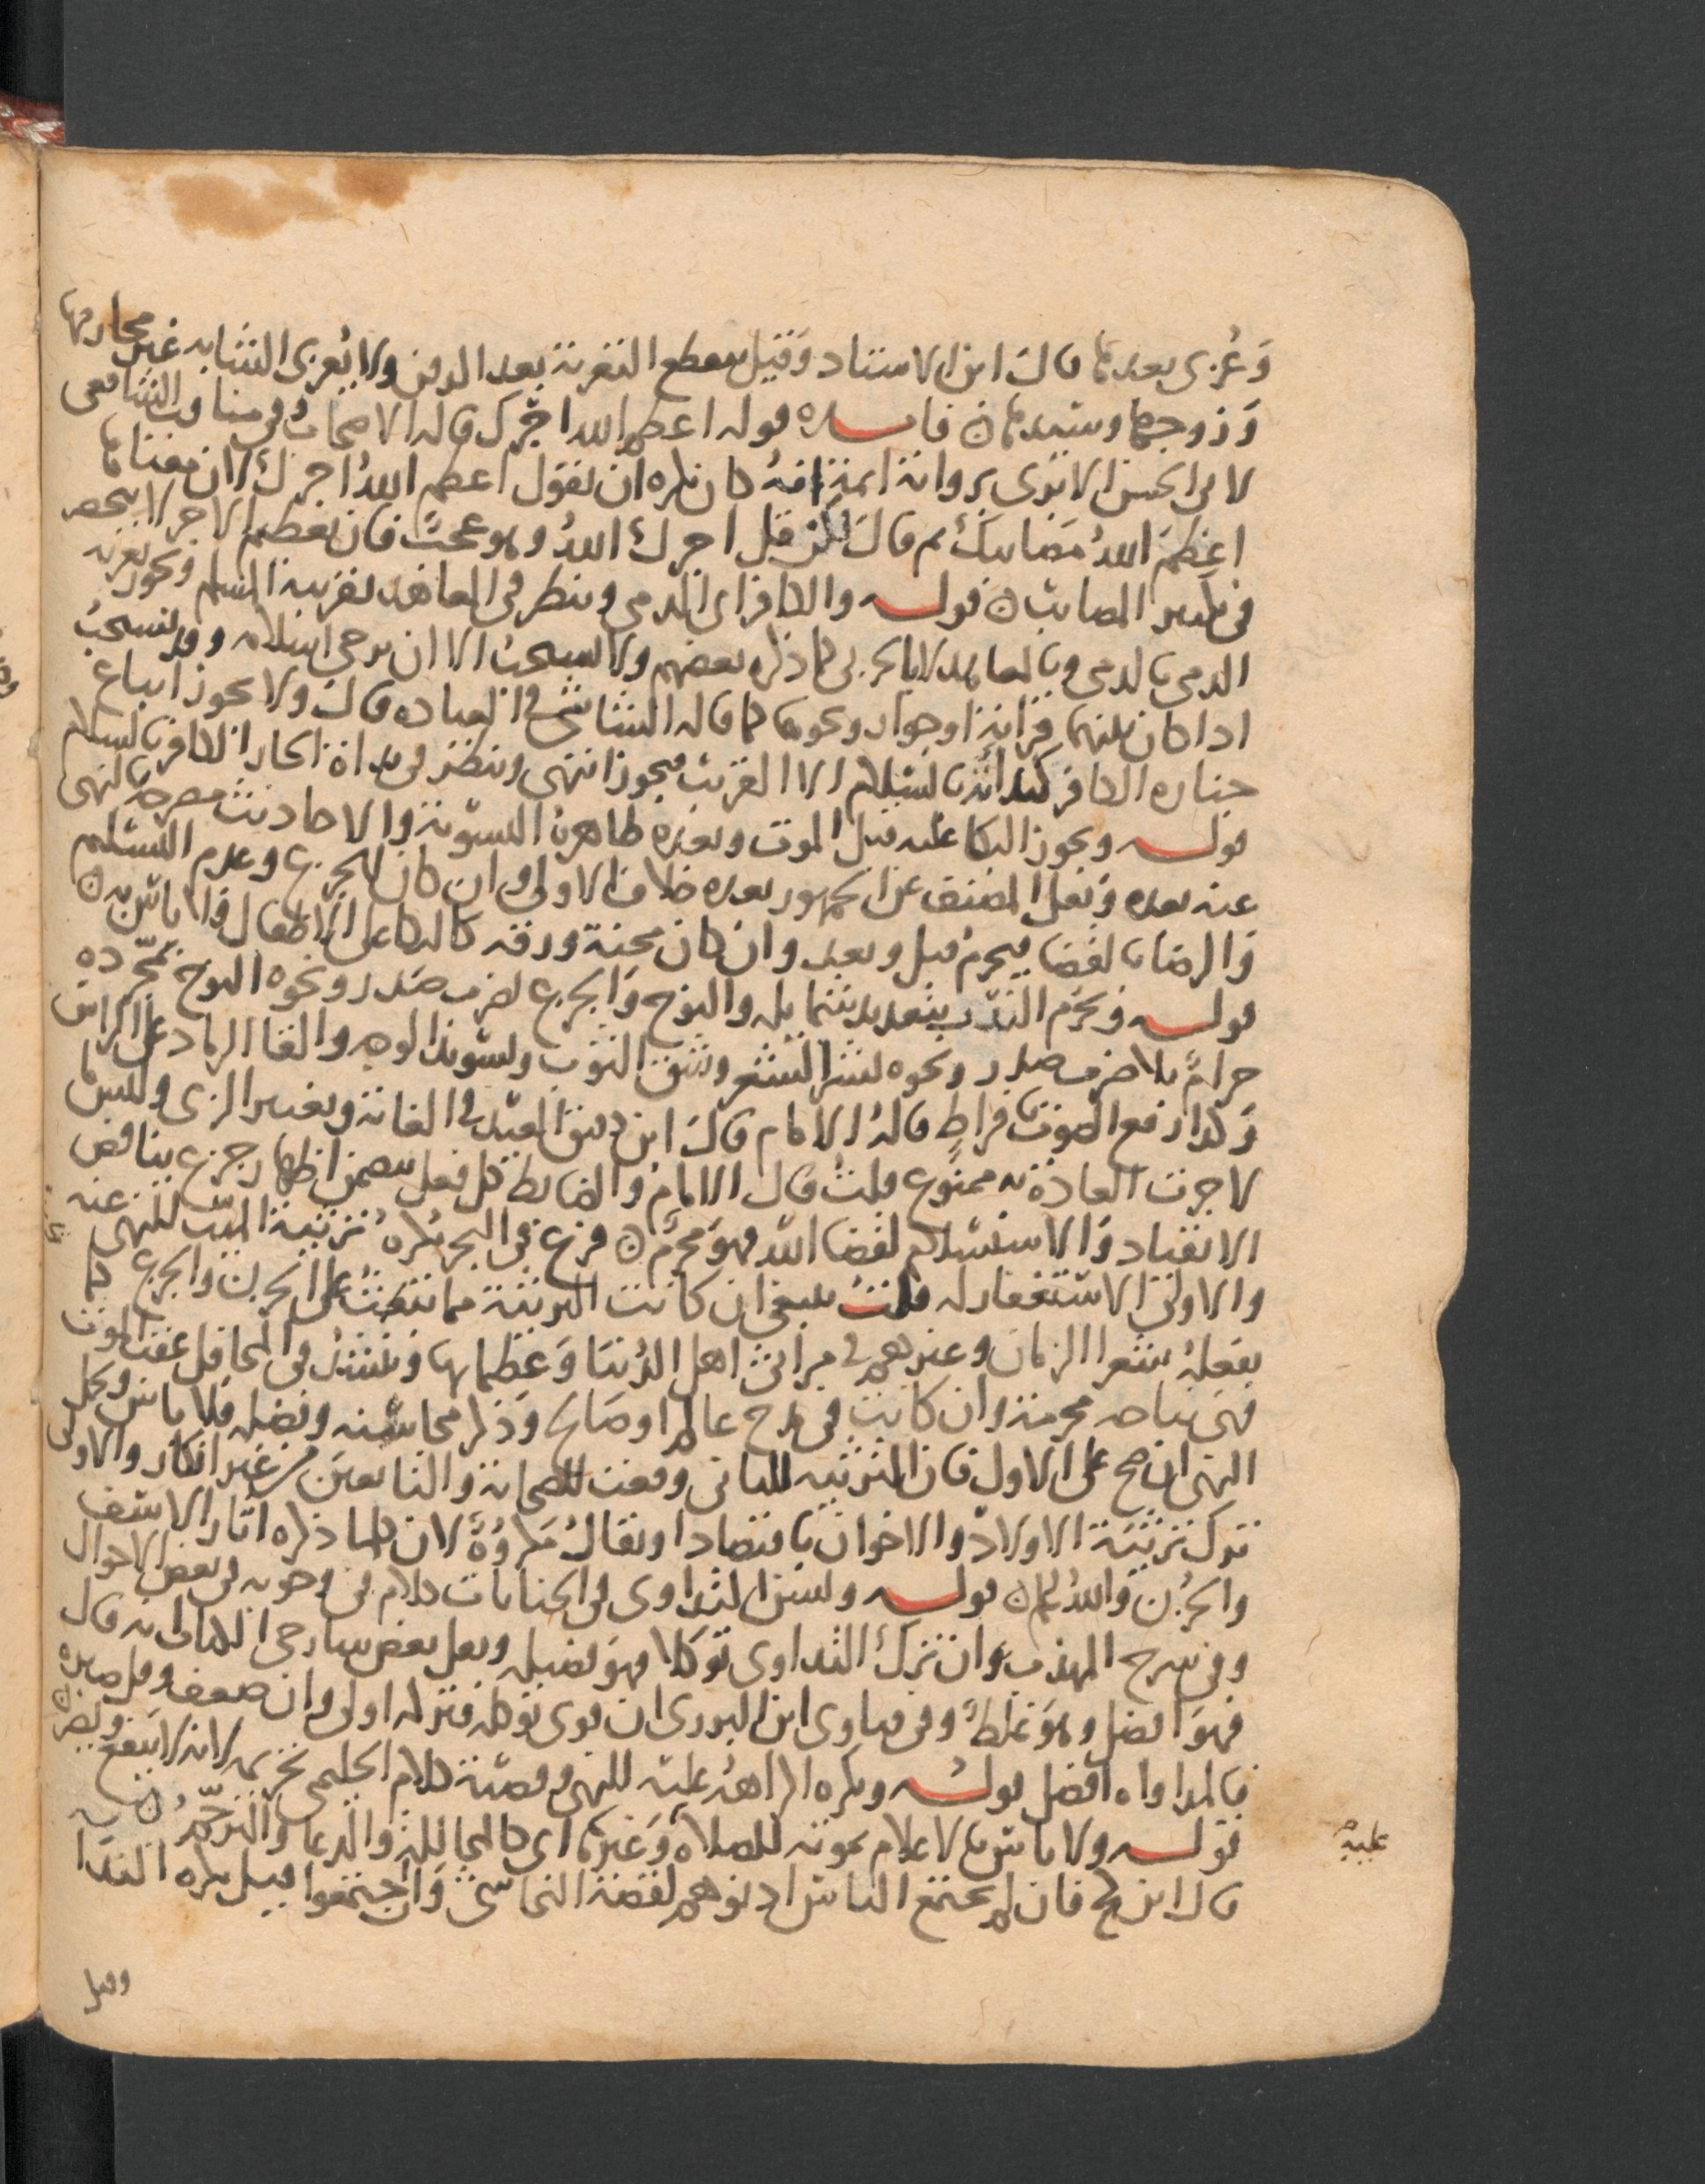 وَعُزى بعدها قالَ ابن الاستاد وَقيل تنقطع التعزية بعد الدفن ولا يُعزى الشابه غير محارمها
وَزوجها وسيدها ن فايده قوله اعظم الله اجرك قاله الاصحاب وفي مناقب الشافعي
لابي الحسن الابري برواية انه كان يكره ان يقول اعظم اللهُ اجرك لان معناها
اعظمَ اللهُ مَصايبَك ثم قالَ لكن قل اجرك اللهُ وهو بحثٌ فان تعظيم الاجر لا ينحصر
في تكثير المصايب ن قوله والكافر اي الذمي وينظر في المعاهد تعزيبة المسلم ويجوز تعزية
الذمي بالذمي وبالمعاهد لا بالحربي كما ذكره بعضهم ولا يستحبُ الا ان يرجى اسلامه وقد يستحبُ
اذا كان بينهما قرابة او جوار ونحوها كما قاله الشاشي في العيادة قالَ ولا يجوز اتباع
جنازه الكافر كبداته بالسلام الا القريب فيجوز انتهى وينظر في بداة الجار الكافر بالسلام
قوله ويجوز البكا عليه قبل الموت وبعده ظاهرهُ التسوية والاحاديث مصرحه بالنهي
عنه بعده وَنقل المصنف عن الجمهور بعده خلاف الاولى وان كان للجزع وعدم التسليم
وَالرضا بالقضا فيحرم قبل وبعد وان كان محبة ورقه كالبكا على الاطفال فلا باس به ن
قوله وَيحرم الندب بتعديد شمايله والنوح وَالجزع بضرب صَدر ونحوه النوح بمجرده
حرامٌ بلا ضرب صدر ونحوه كنشر الشعر وشق الثوب وتسويد الوجه والقا الرماد على الراس
وَكذا رفع الصوت بافراط قالهُ الامام قالَ ابن دقيق العيد في الغاية وتغيير الزي ولبس ما
لا جرت العادَة به ممنوع قلتُ قال الامامُ وَالضابط كل فعل يتضمن اظهار جزع يناقض
الانقياد وَالاستسلام لقضا الله فهوَ محرَّم ن فرع في البحر يُكرهُ ترثيةُ الميّت للنهي عنه
والاولىَ الاستغفار له قلتُ ينبغي ان كانت المرثية مما تبعثُ على الحزن والجزع كما
يفعلهُ شعرا الزمان وغيرهم في مراثي اهل الدُنيا وَعظمايها وَينشدُ في المحافل عقب الموت
فهيَ نياحه محرمة وان كانت في مدح عالم او صَالح وَذكر محاسنه وفضله فلا باس ويحمل
النهي ان صح على الاول فان المرثيه للثاني وقعت للصحابة والتابعينَ من غير انكار والاولى
تركَ ترثيَة الاولاد والاخوان باقتصادا ويقالُ مَكروُهَةً لان كلما ذكره اثار الاسَف
والحزُن وَاللهُ اعلم ن قوله ويسَن التداوى في الجنايات كلام في وجوبه في بعض الاحوال
وفي شرح المهذب وان تركَ التداوى تَوكلا فهوَ فضيله ونقل بعض شارحي الكتاب انه قال
فهوَ افضل وهوَ غلطٌ وفي فتاوى ابن البزري ان قوى توكله فتركه اولى وان ضعف وقل صبره
فالمداواه افضل قوله ويكره اكراههُ عليه للنهي وقضيّة كلام الحليمي تحريمه لانه لا ينفع ويضر ن
قوله ولا باسَ بالاعلام بموته للصلاه وَغيرها اى كالمحاللة والدعا والترحّمُ ن
قال ابن كج فان لم يجتمع الناس اذنوهم لقصة النجاشي وَان اجتمعوا فقيل يكره الندا
وقيل
عليه